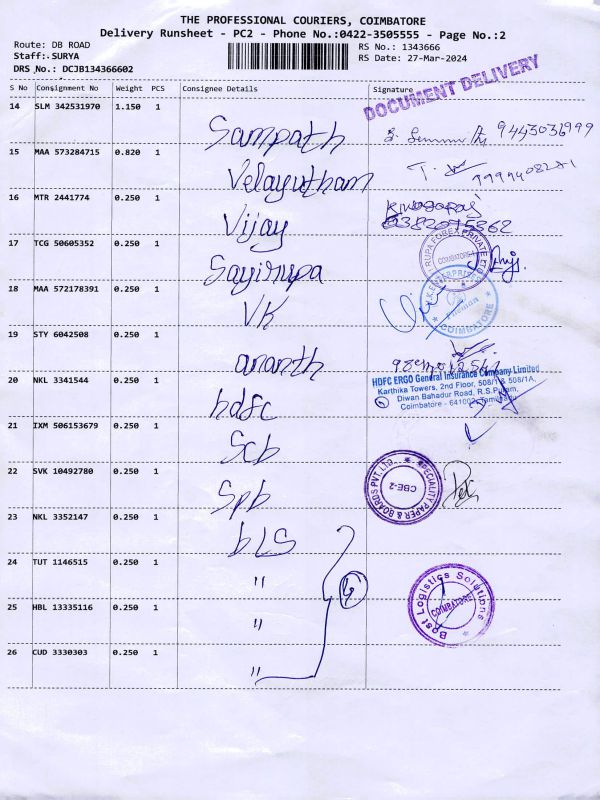 THE PROFESSIONAL COURIERS, COIMBATORE
Delivery Runsheet - PC2 - Phone No.:0422-3505555 - Page No.:2
Route: DB ROAD RS No.: 1343666
Staff: SURYA RS Date: 27-Mar-2024
DRS No.: DCJB134366602
DOCUMENT DELIVERY
S No Consignment No Weight PCS Consignee Details Signature
14 SLM 342531970 1.150 1 Sampath 9443036999
15 MAA 573284715 0.820 1 Velayutham
16 MTR 2441774 0.250 1 Vijay
17 TCG 50605352 0.250 1 Sayirupa
RUPA FOREX PRIVATE LTD
COIMBATORE
18 MAA 572178391 0.250 1 VK
V.K. ENTERPRISES
COIMBATORE
19 STY 6042508 0.250 1 ananth
20 NKL 3341544 0.250 1 hdfc
HDFC ERGO General Insurance Company Limited
Karthika Towers, 2nd Floor, 508/1 & 508/1A,
Diwan Bahadur Road, R.S.Puram,
Coimbatore - 641002, Tamilnadu
21 IXM 506153679 0.250 1 Scb
22 SVK 10492780 0.250 1 Spb
SPECIALITY PAPER & BOARDS PVT. LTD.
CBE-2
23 NKL 3352147 0.250 1 bLS
24 TUT 1146515 0.250 1 "
Best Logistics Solutions
COIMBATORE
25 HBL 13335116 0.250 1 "
26 CUD 3330303 0.250 1 "